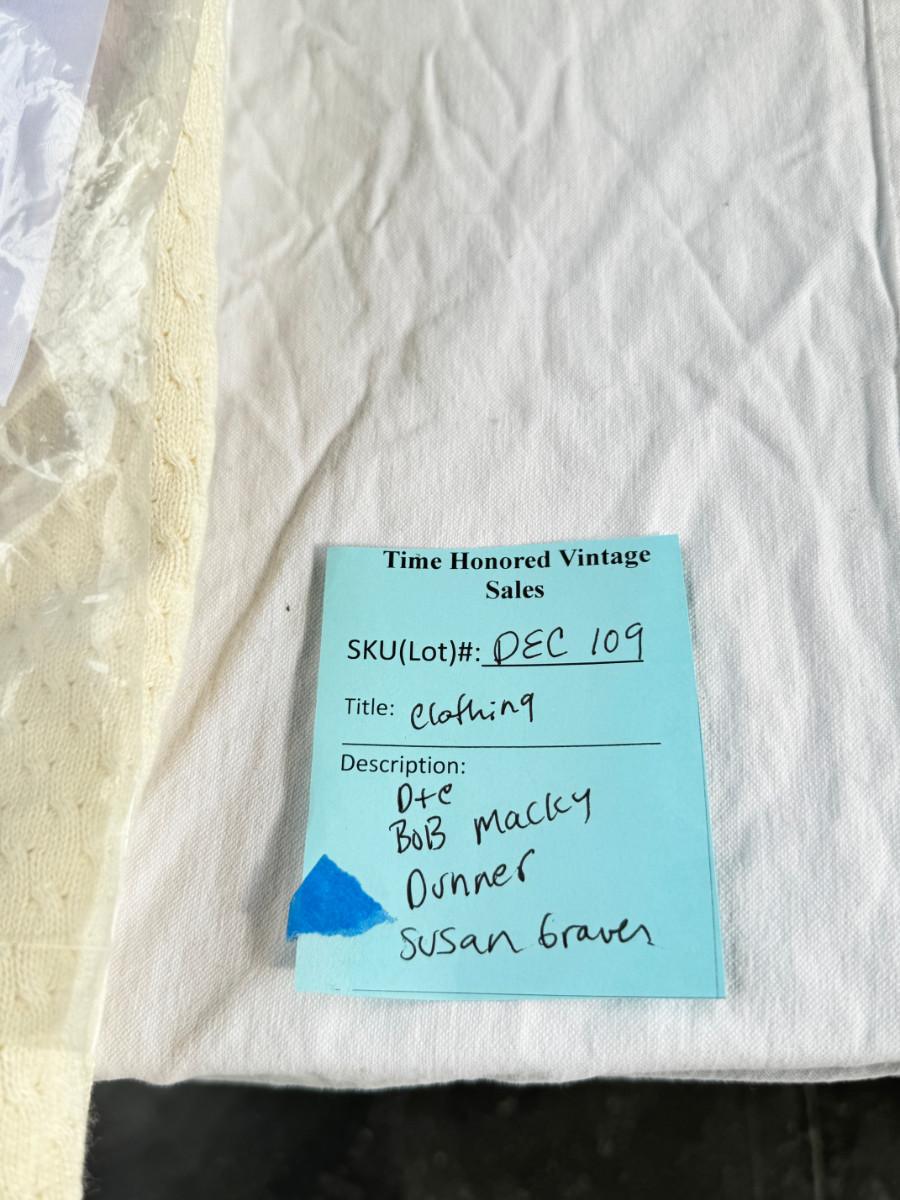 Time Honored Vintage
Sales
SKU(Lot)#: DEC 109
Title: Clothing
Description:
D+C
BOB Macky
Dunner
Susan Graver